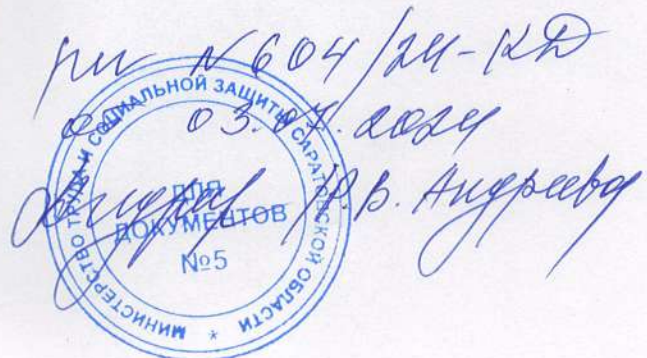 рег N 604/24-КД
от 03.07.2024
/Р.В. Андреева
МИНИСТЕРСТВО ТРУДА И СОЦИАЛЬНОЙ ЗАЩИТЫ САРАТОВСКОЙ ОБЛАСТИ *
ДЛЯ
ДОКУМЕНТОВ
№5